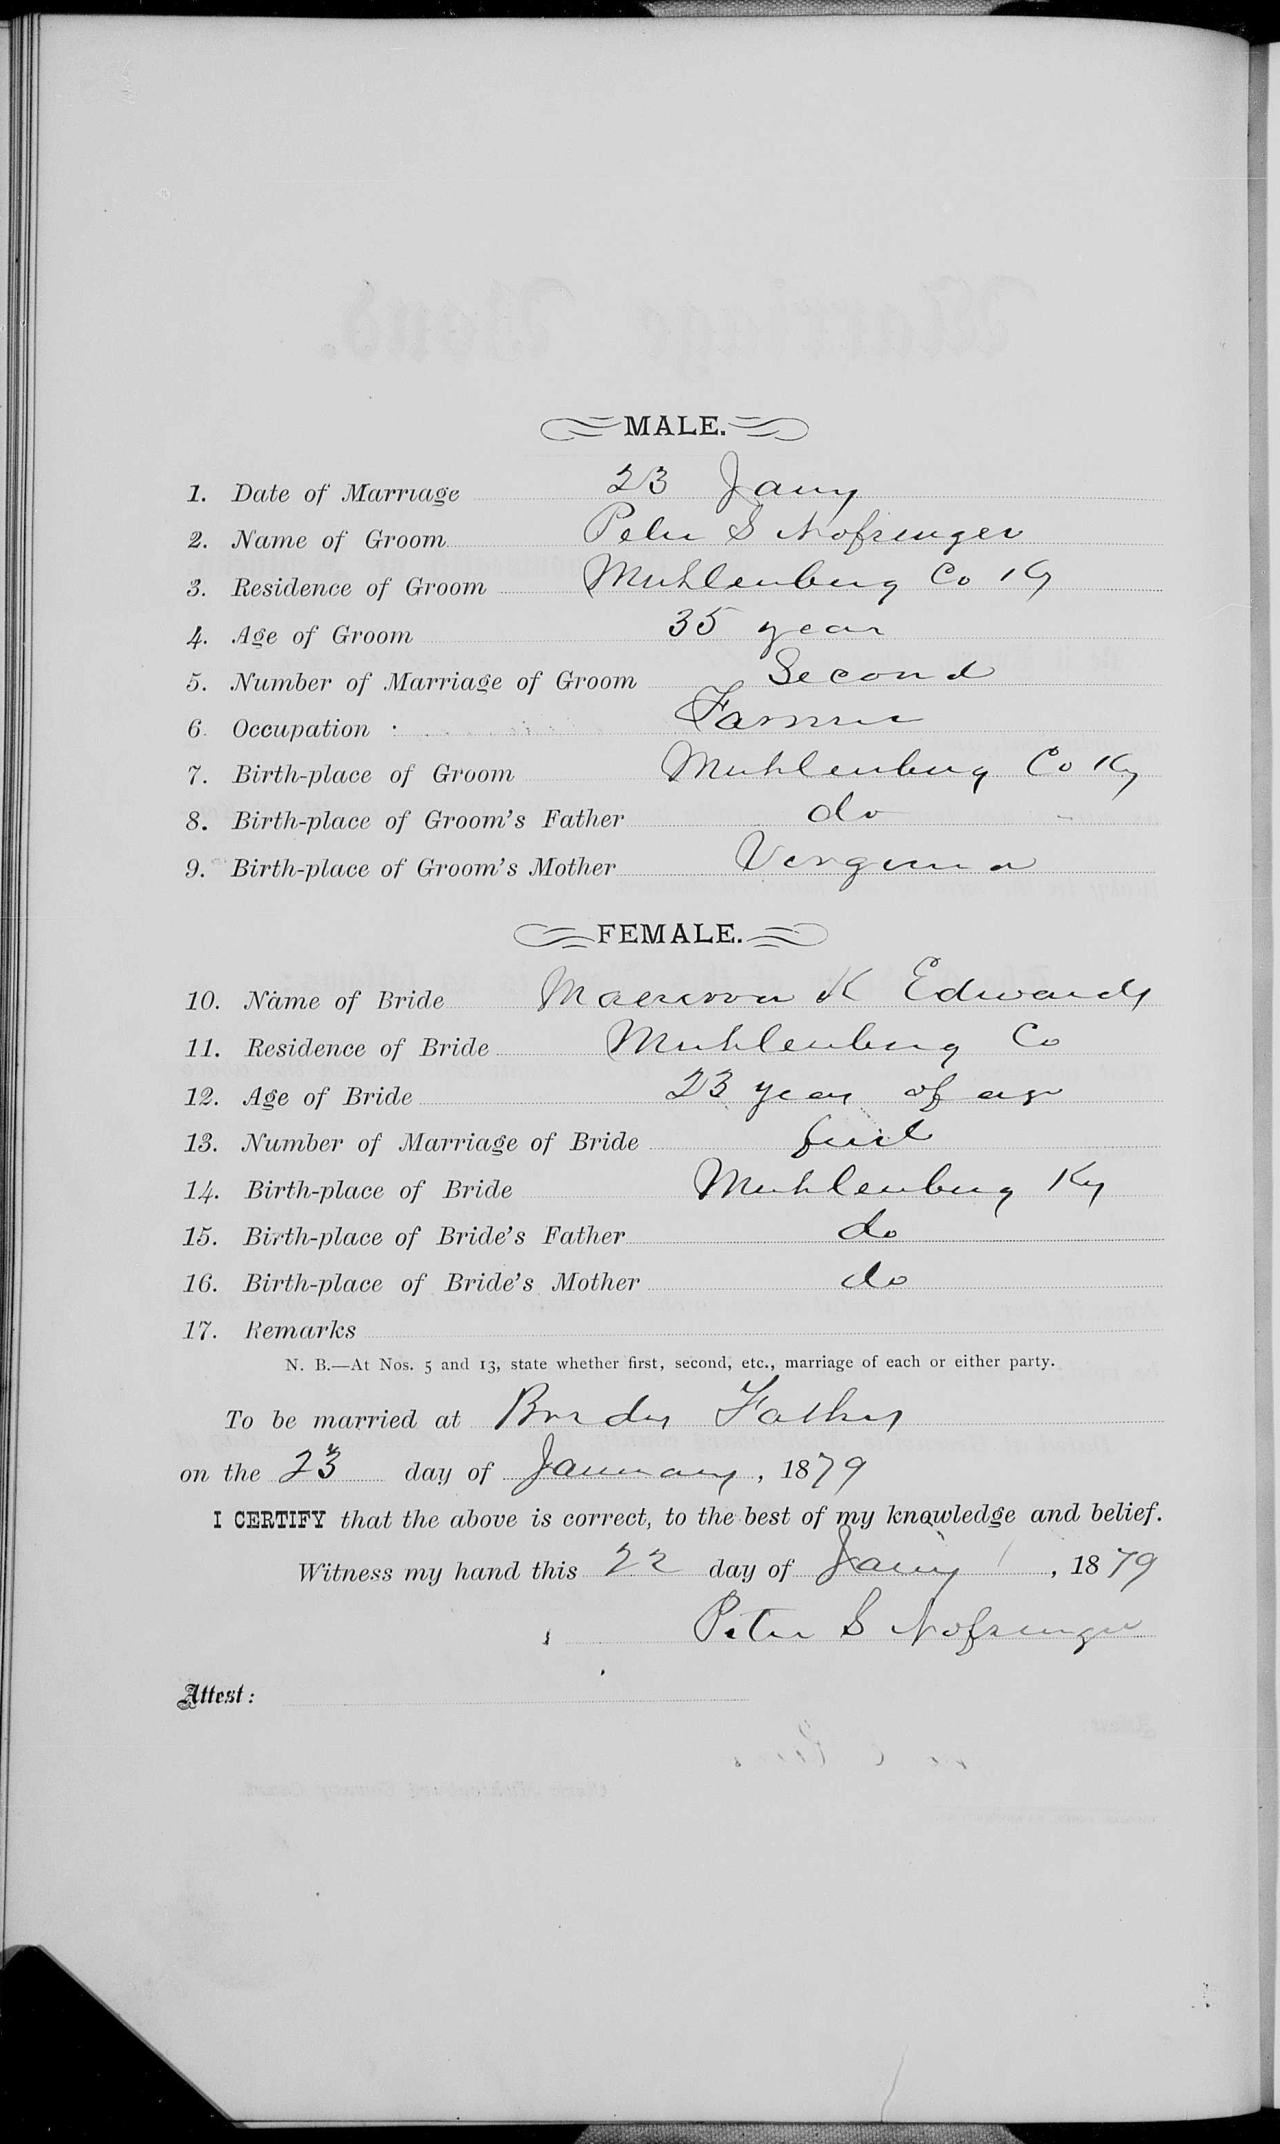 MALE.
1. Date of Marriage 23 Jany
2. Name of Groom Peter S Nofsinger
3. Residence of Groom Muhlenburg Co Ky
4. Age of Groom 35 year
5. Number of Marriage of Groom Second
6. Occupation Farmer
7. Birth-place of Groom Muhlenburg Co Ky
8. Birth-place of Groom's Father do
9. Birth-place of Groom's Mother Virginia
FEMALE.
10. Name of Bride K Edwards
11. Residence of Bride Muhlenburg Co
12. Age of Bride 23 years of age
13. Number of Marriage of Bride first
14. Birth-place of Bride Muhlenburg Ky
15. Birth-place of Bride's Father do
16. Birth-place of Bride's Mother do
17. Remarks
N. B.—At Nos. 5 and 13, state whether first, second, etc., marriage of each or either party.
To be married at Brides Fathers
on the 23 day of January, 1879
I CERTIFY that the above is correct, to the best of my knowledge and belief.
Witness my hand this 22 day of Jany, 1879
Peter S Nofsinger
Attest: